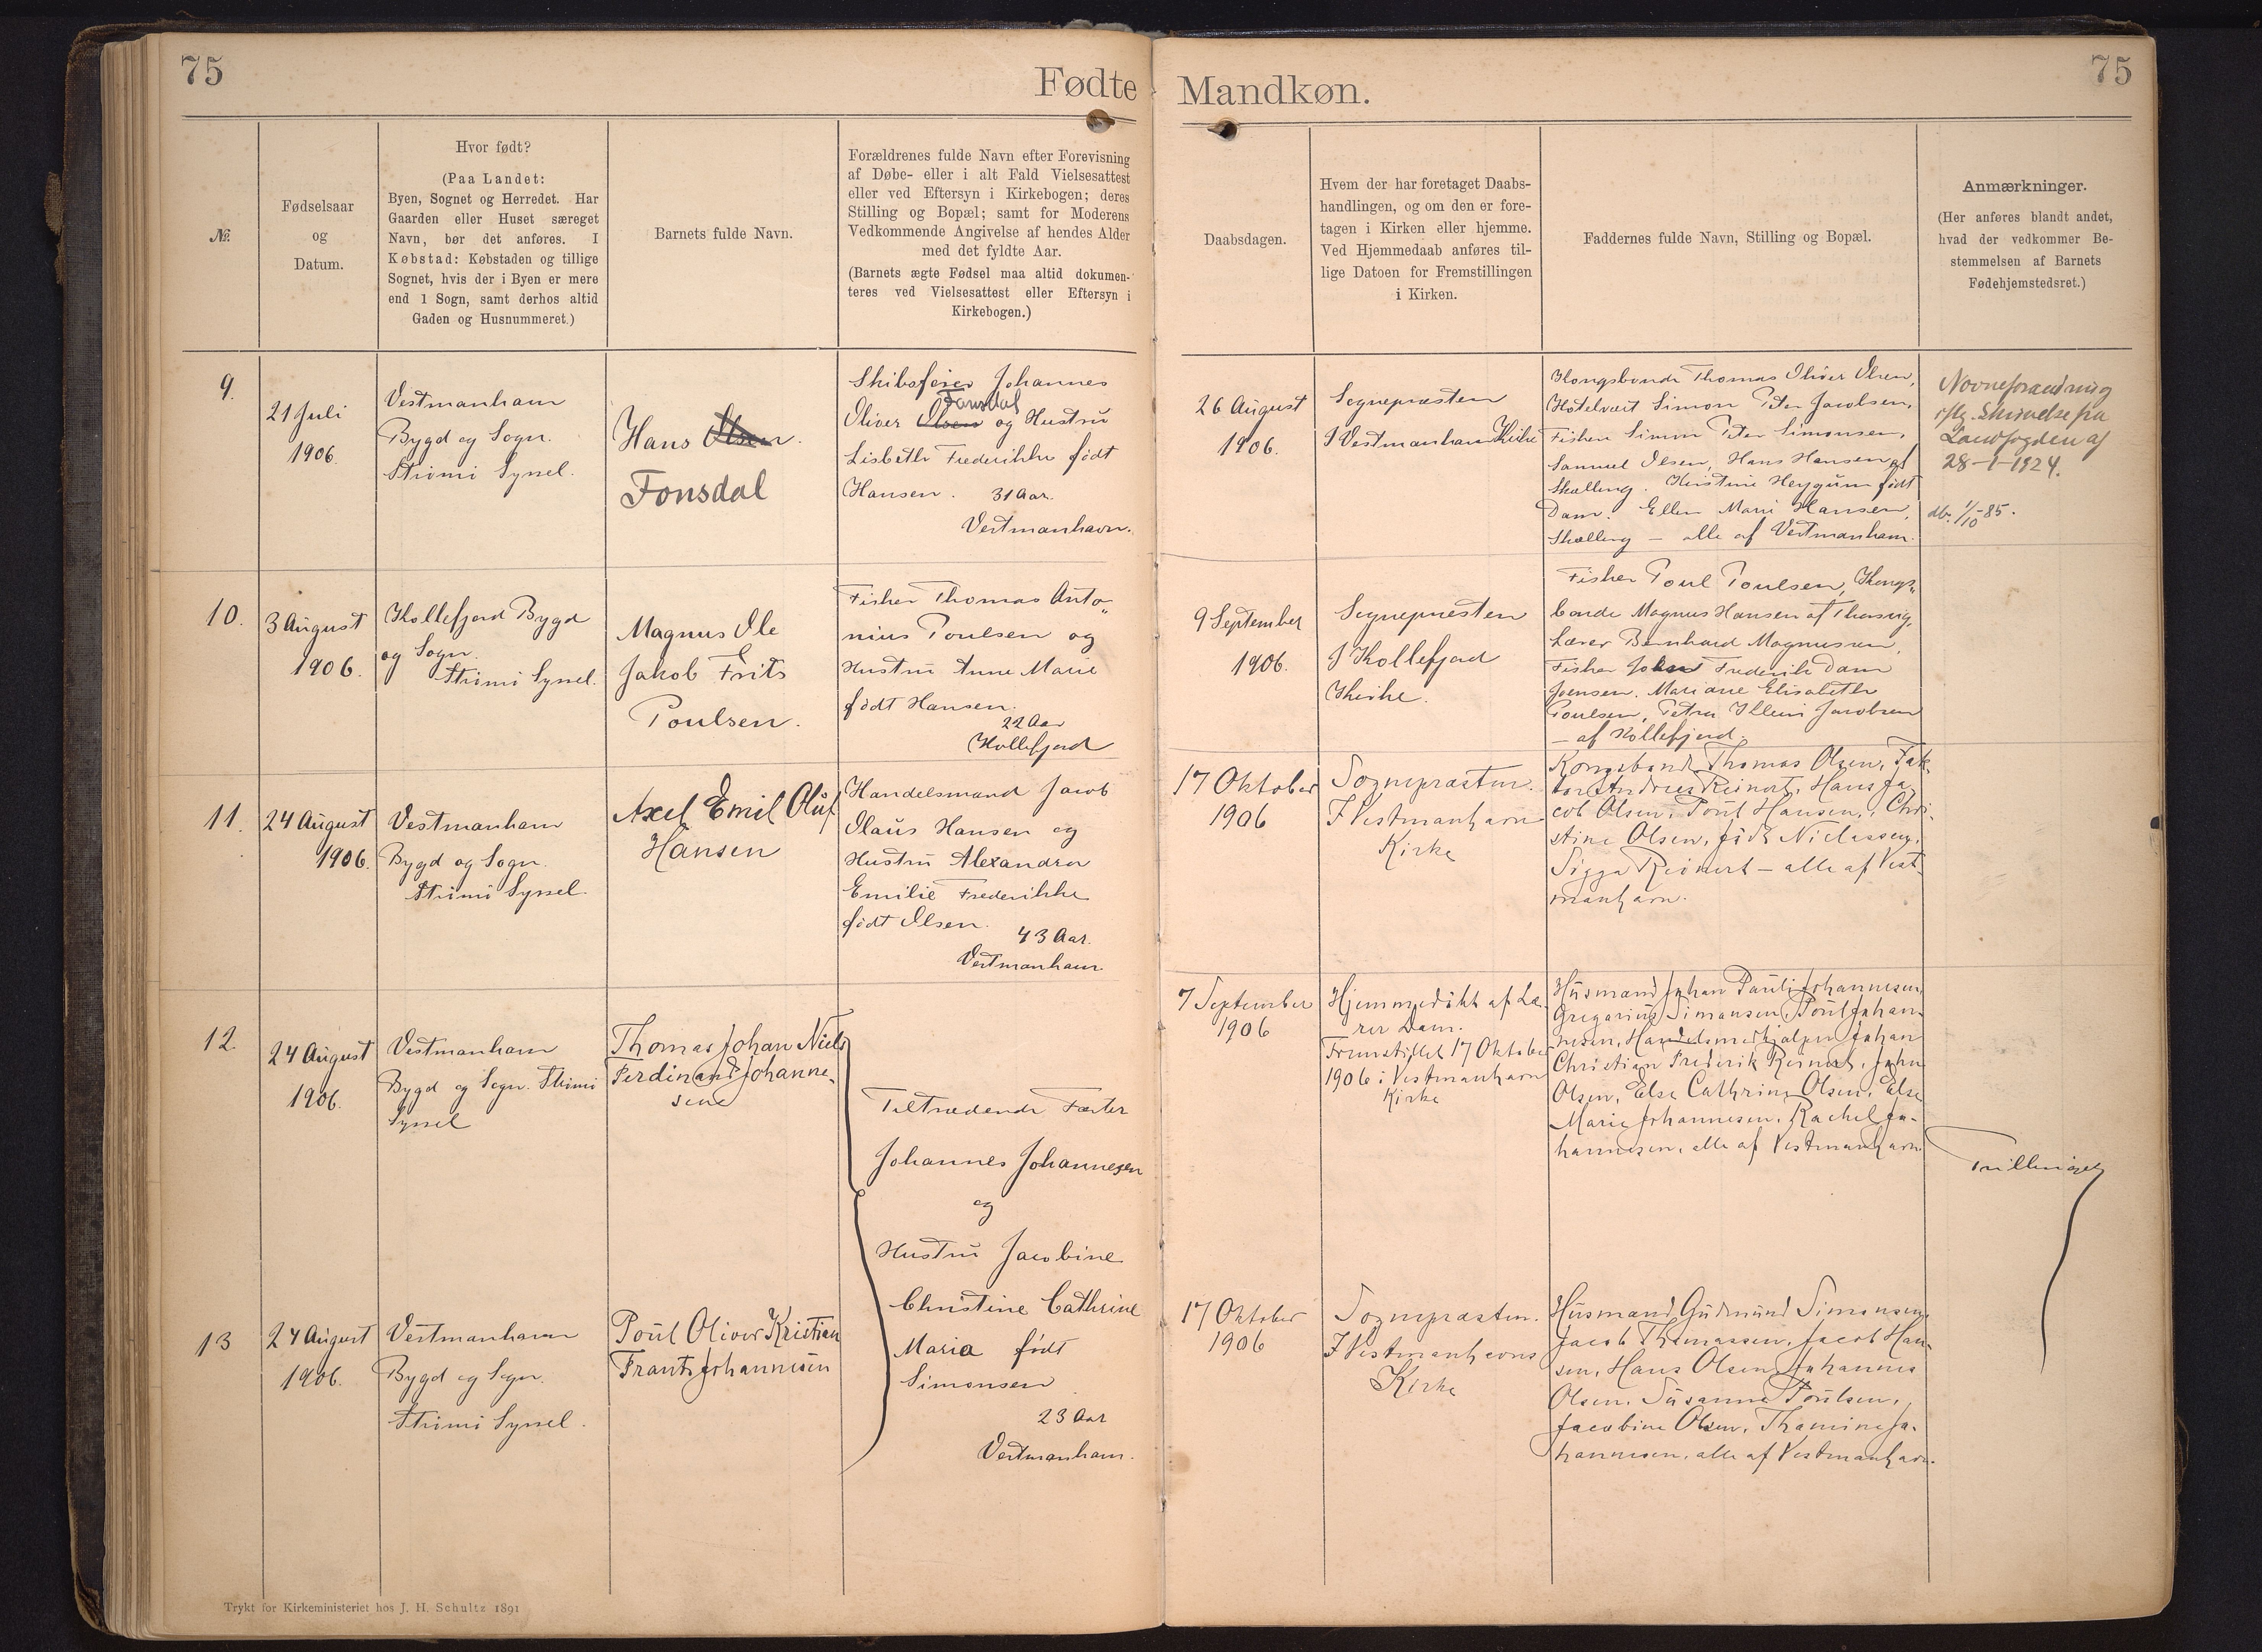 75
Fødte Mandkøn.
75
№.
Fødselsaar
og
Datum.
Hvor født?
(Paa Landet:
Byen, Sognet og Herredet. Har
Gaarden eller Huset særeget
Navn, bør det anføres. I
Købstad: Købstaden og tillige
Sognet, hvis der i Byen er mere
end 1 Sogn, samt derhos altid
Gaden og Husnummeret.)
Barnets fulde Navn.
Forældrenes fulde Navn efter Forevisning
af Døbe- eller i alt Fald Vielsesattest
eller ved Eftersyn i Kirkebogen; deres
Stilling og Bopæl; samt for Moderens
Vedkommende Angivelse af hendes Alder
med det fyldte Aar.
(Barnets ægte Fødsel maa altid dokumen-
teres ved Vielsesattest eller Eftersyn i
Kirkebogen.)
Daabsdagen.
Hvem der har foretaget Daabs-
handlingen, og om den er fore-
tagen i Kirken eller hjemme.
Ved Hjemmedaab anføres til-
lige Datoen for Fremstillingen
i Kirken.
Faddernes fulde Navn, Stilling og Bopæl.
Anmærkninger.
(Her anføres blandt andet,
hvad der vedkommer Be-
stemmelsen af Barnets
Fødehjemstedsret.)
9.
21 Juli
1906.
Vestmanhavn
Bygd og Sogn.
Strömö Syssel.
Hans Olsen.
Fonsdal
Skibsfører Johannes
Fonsdal
Oliver Olsen og Hustru
Lisbeth Frederikke født
Hansen. 31 Aar.
Vestmanhavn.
26 August
1906.
Sognepræsten
I Vestmanhavn Kirke
Kongsbonde Thomas Oliver Olsen,
Hotelvært Simon Peter Jacobsen,
Fisker Simon Peter Simonsen,
Samuel Olsen, Hans Hansen af
Skælling. Kirstine Heygum født
Dam. Ellen Marie Hansen,
Skælling – alle af Vestmanhavn.
Navneforandring
iflg. Skrivelse fra
Landfogden af
28-1-1924.
db. 1/10-85.
10.
3 August
1906.
Kollefjord Bygd
og Sogn.
Strömö Syssel.
Magnus Ole
Jakob Frits
Poulsen.
Fisker Thomas Anto„
nius Poulsen og
Hustru Anne Marie
født Hansen.
22 Aar
Kollefjord
9 September
1906.
Sognepræsten
I Kollefjord
Kirke.
Fisker Poul Poulsen, Kongs„
bonde Magnus Hansen af Thorsvig,
Lærer Bernhard Magnussen,
Fisker Johan Frederik Dam
Joensen. Mariane Elisabeth
Poulsen, Petra Jacobsen
– af Kollefjord.
11.
24 August
1906.
Vestmanhavn
Bygd og Sogn.
Strömö Syssel.
Axel Emil Oluf
Hansen
Handelsmand Jacob
Olaus Hansen og
Hustru Alexandra
Emilie Frederikke
født Olsen.
43 Aar.
Vestmanhavn
17 Oktober
1906
Sognepræsten.
I Vestmanhavn
Kirke
Kongsbonde Thomas Olsen, Fak-
tor Andreas Reinert, Hans Ja-
cob Olsen, Poul Hansen, Chri-
stine Olsen, født Niclassen,
Sigga Reinert – alle af Vest-
manhavn.
12.
24 August
1906.
Vestmanhavn
Bygd og Sogn. Strömö
Syssel
Thomas Johan Niels
Ferdinand Johanne-
sen
Tiltrædende Fæster
Johannes Johannesen
og
Hustru Jacobine
Christine Cathrine
Maria født
Simonsen
23 Aar
Vestmanhavn.
7 September
1906
Hjemmedøbt af Læ-
rer Dam.
Fremstillet 17 Oktober
1906 i Vestmanhavn
Kirke
Husmand Johan Pauli Johannesen,
Gregarius Simonsen, Poul Johan-
nesen, Handelsmedhjælper Johan
Christian Frederik Reinert, John
Olsen, Else Cathrine Olsen, Else
Marie Johannesen, Rachel Jo-
hannesen, alle af Vestmanhavn.
Trillinger
13
24 August
1906.
Vestmanhavn
Bygd og Sogn.
Strömö Syssel.
Poul Oliver Kristian
Frants Johannesen
17 Oktober
1906
Sognepræsten.
I Vestmanhavns
Kirke
Husmand Gudmund Simonsen,
Jacob Thomassen, Jacob Han-
sen, Hans Olsen, Johannes
Olsen, Susanne Poulsen,
Jacobine Olsen, Thomine Jo-
hannesen, alle af Vestmanhavn.
Trykt for Kirkeministeriet hos J. H. Schultz 1891